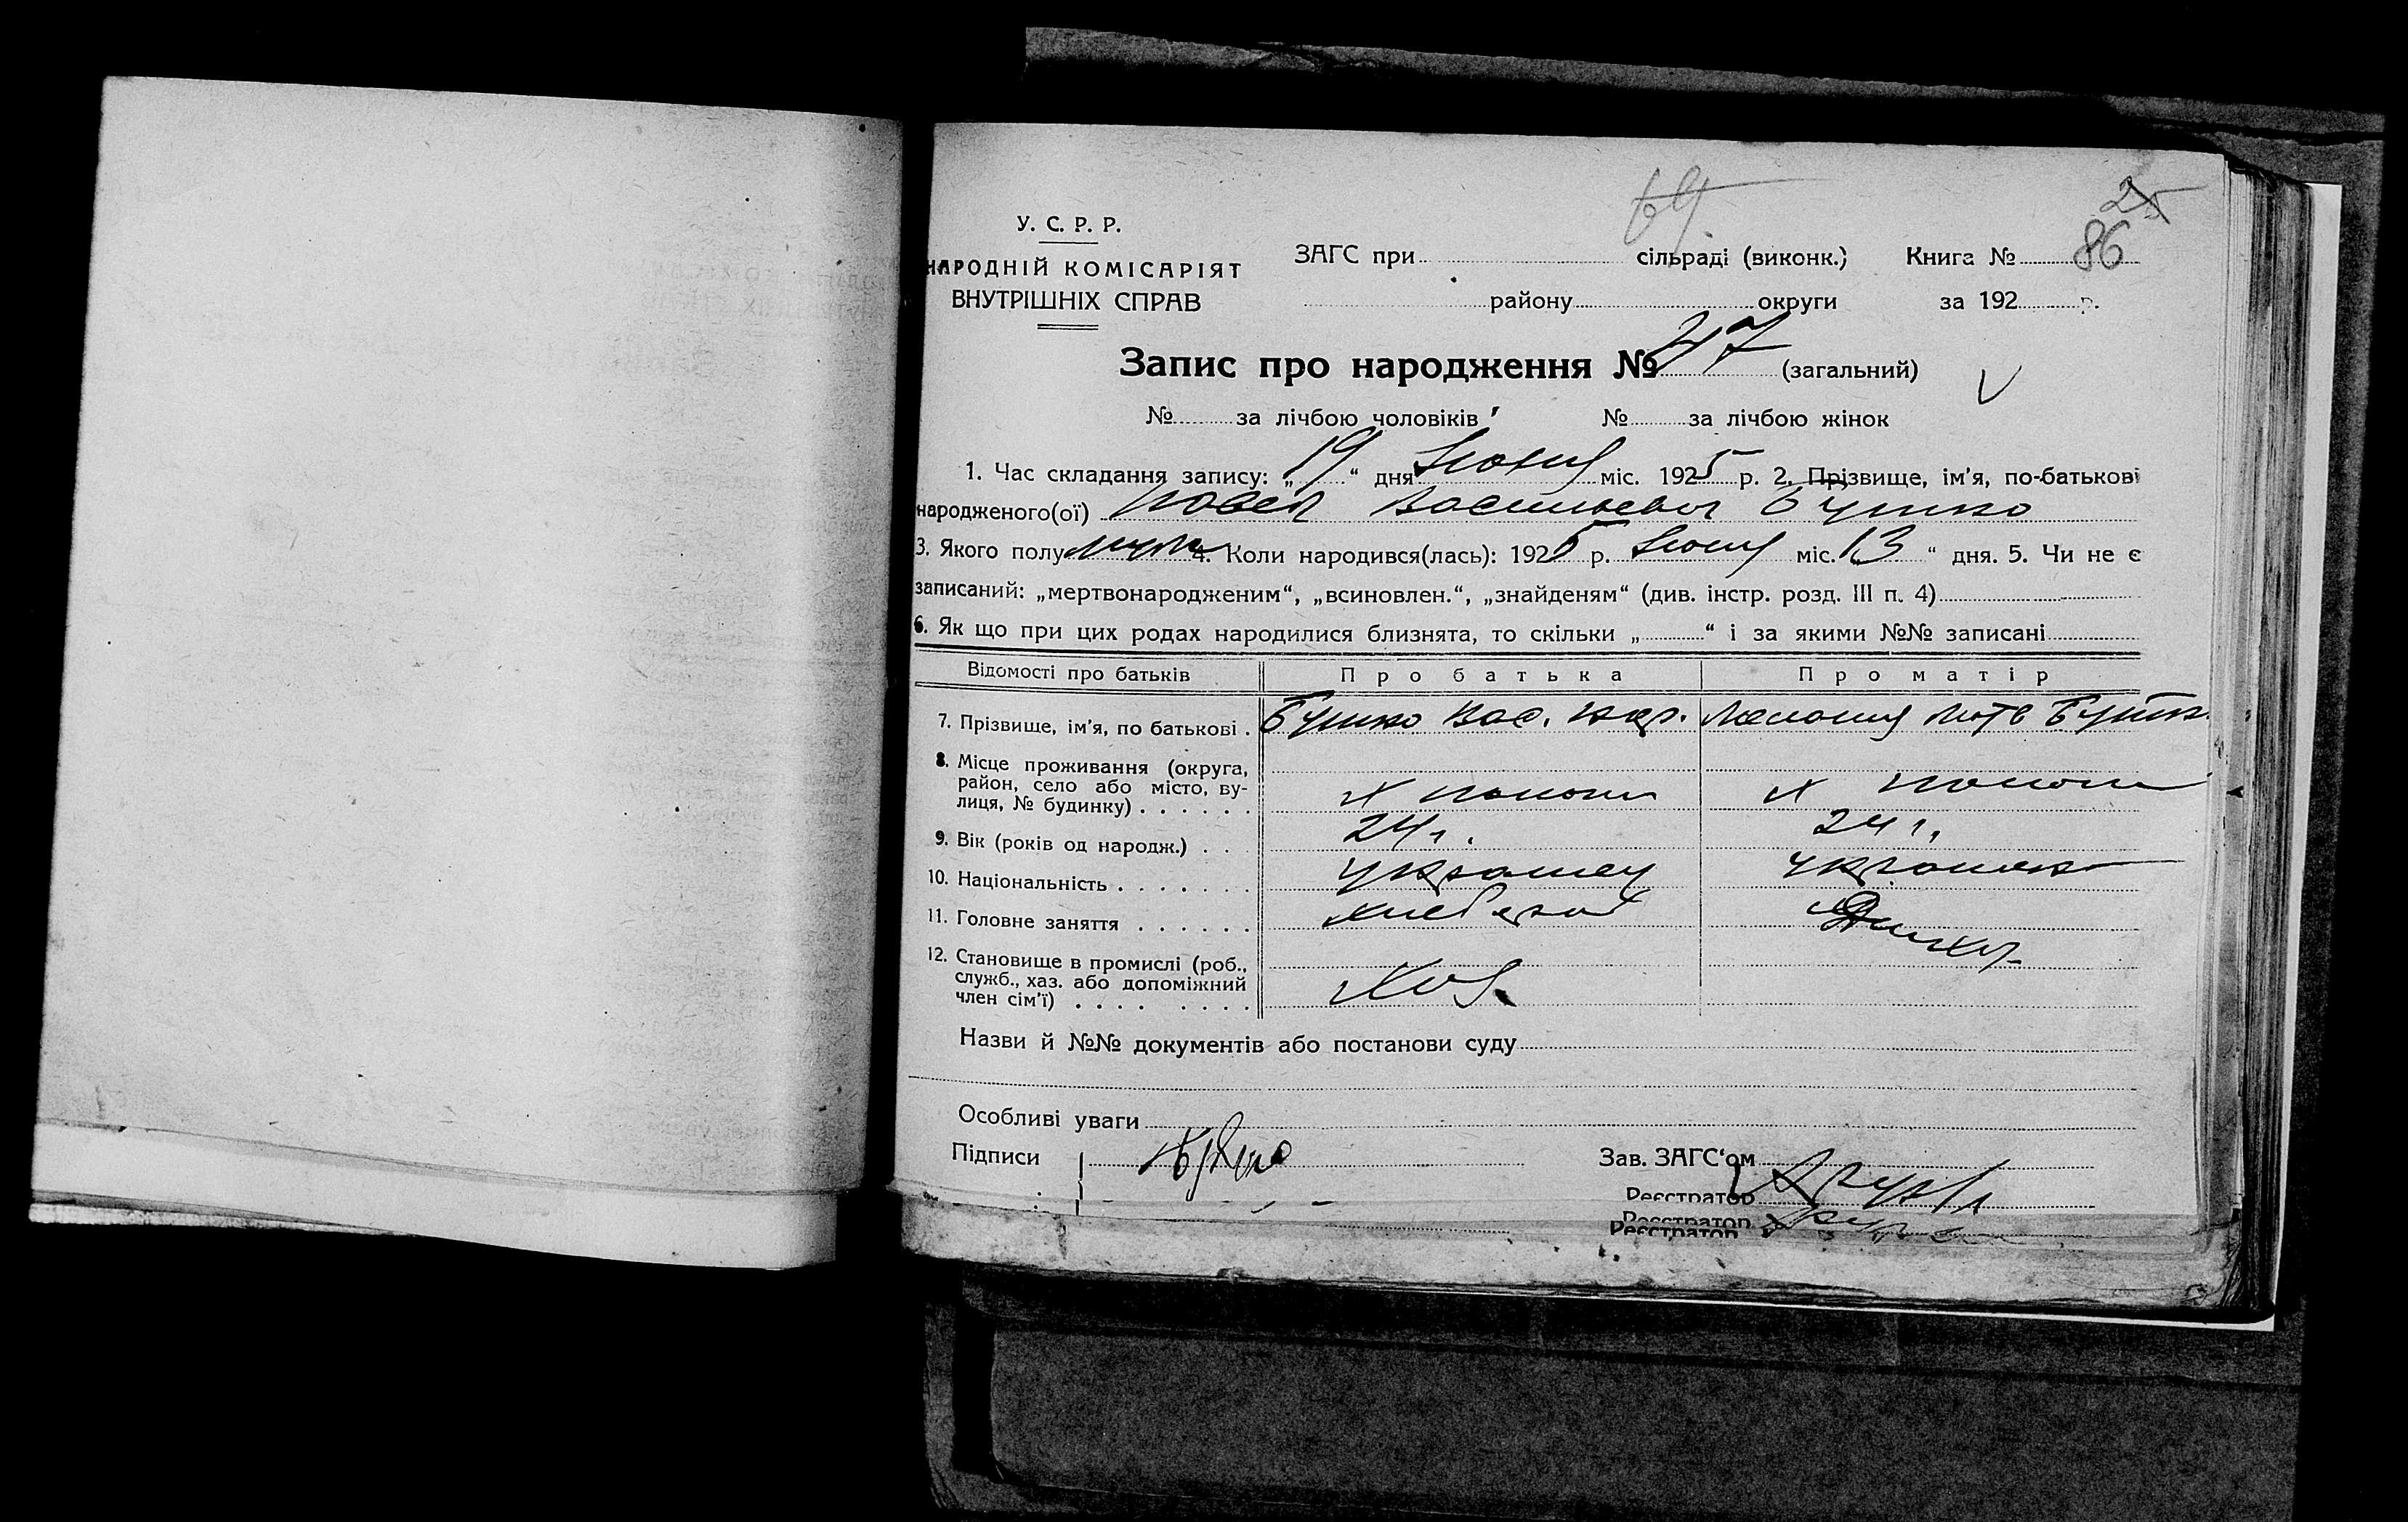 25
86
У. С. Р. Р.
НАРОДНІЙ КОМІСАРІЯТ
ВНУТРІШНІХ СПРАВ
ЗАГС при сільраді (виконк.) Книга №
району округи за 192 р.
Запис про народження № 47 (загальний)
№ за лічбою чоловіків № за лічбою жінок
1. Час складання запису: „19“ дня Июня міс. 1925 р. 2. Прізвище, ім'я, по-батькові
народженого(ої) Павел Васильевич Бушко
3. Якого полу муж 4. Коли народився(лась): 1925 р. Июня міс. „13“ дня. 5. Чи не є
записаний: „мертвонародженим“, „всиновлен.“, „знайденям“ (див. інстр. розд. III п. 4)
6. Як що при цих родах народилися близнята, то скільки „ “ і за якими №№ записані
Відомості про батьків Про батька Про матір
7. Прізвище, ім'я, по батькові . Бушко Вас.
8. Місце проживання (округа,
район, село або місто, ву-
лиця, № будинку) . . . . . .
9. Вік (років од народж.) . . 24 г. 24 г.
10. Національність . . . . . . . украинец украинка
11. Головне заняття . . . . . . хлебороб
12. Становище в промислі (роб.,
служб., хаз. або допоміжний
член сім'ї) . . . . . . . . Хоз.
Назви й №№ документів або постанови суду
Особливі уваги
Підписи Зав. ЗАГС'ом
Реєстратор
Реєстратор
Реєстратор